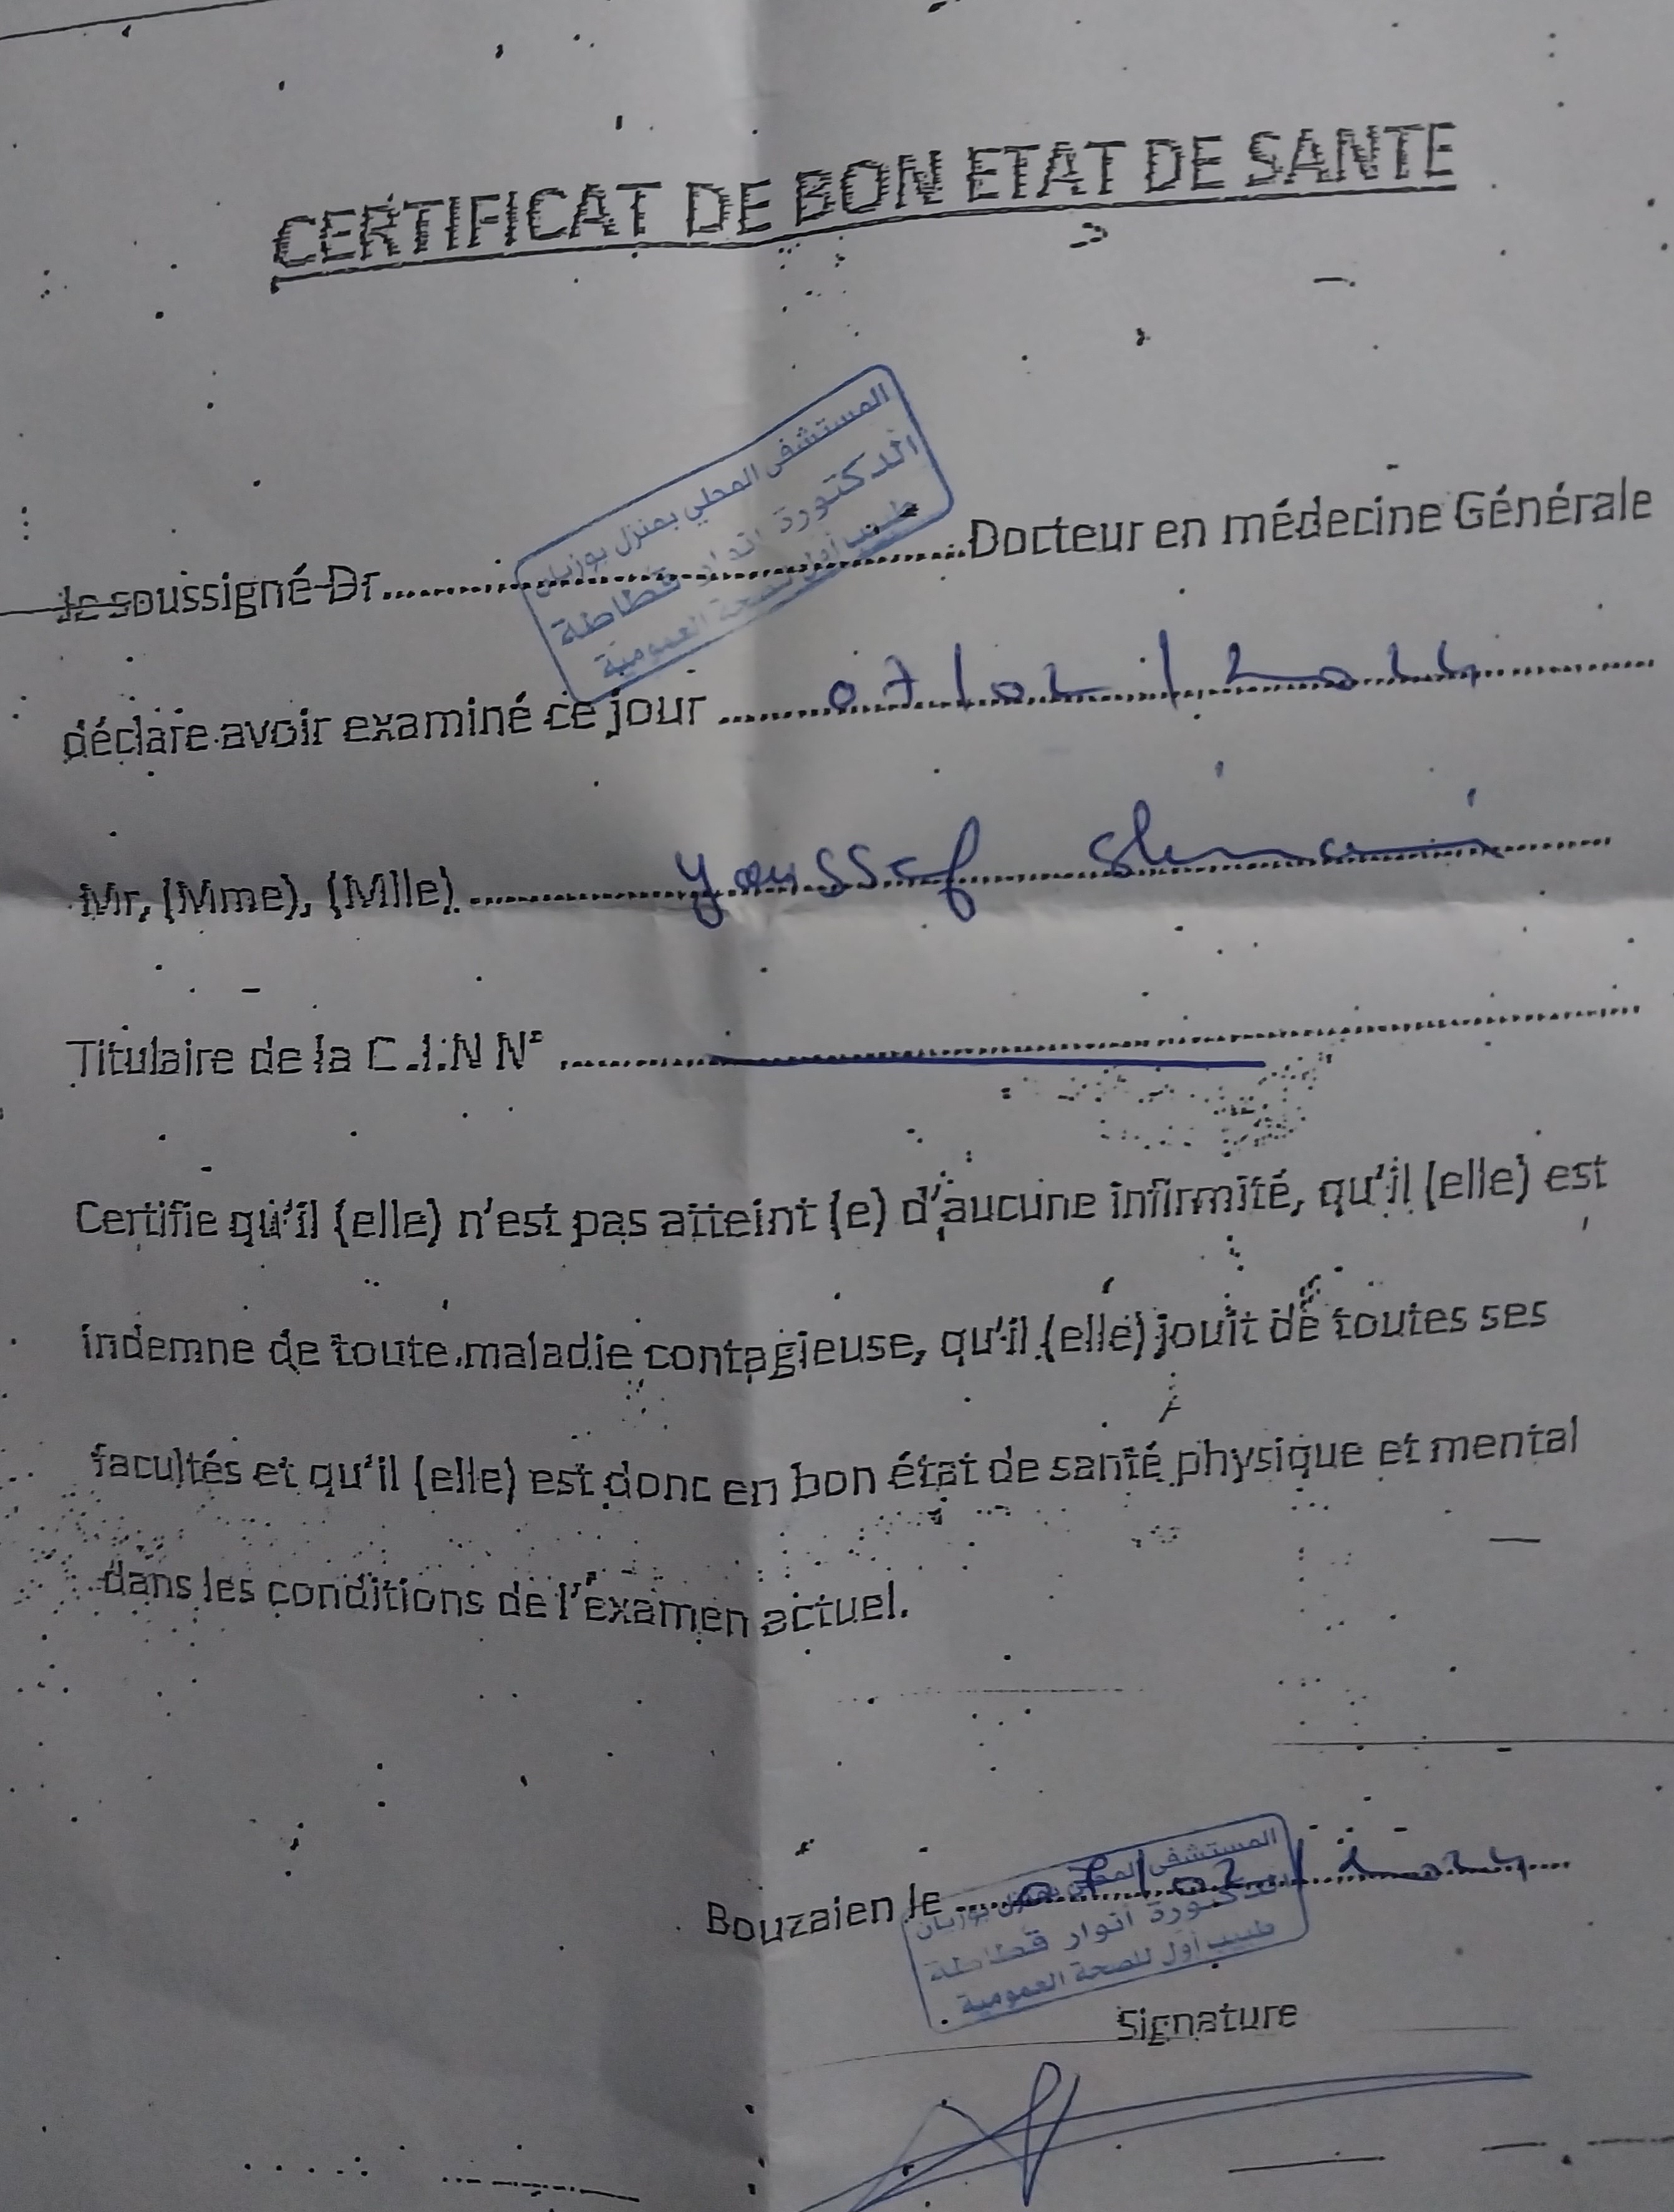 CERTIFICAT DE BON ETAT DE SANTE
المستشفى المحلي بمنزل بوزيان
الدكتورة أنوار قطاطة
طبيب أول للصحة العمومية
Je soussigné Dr..............................Docteur en médecine Générale
déclare avoir examiné ce jour ........ 07/02/2022
Mr, (Mme), (Mlle) ........ youssef
Titulaire de la C.I.N N° ........
Certifie qu'il (elle) n'est pas atteint (e) d'aucune infirmité, qu'il (elle) est
indemne de toute maladie contagieuse, qu'il (elle) jouit de toutes ses
facultés et qu'il (elle) est donc en bon état de santé physique et mental
dans les conditions de l'examen actuel.
Bouzaien le ........
المستشفى المحلي بمنزل بوزيان
الدكتورة أنوار قطاطة
طبيب أول للصحة العمومية
Signature